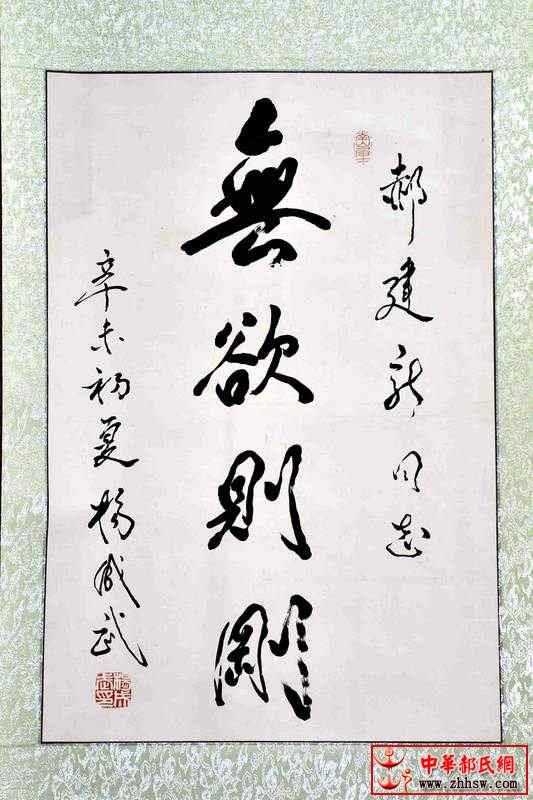 郝建新同志
無欲則剛
辛未初夏楊成武
中華郝氏網
www.zhhsw.com